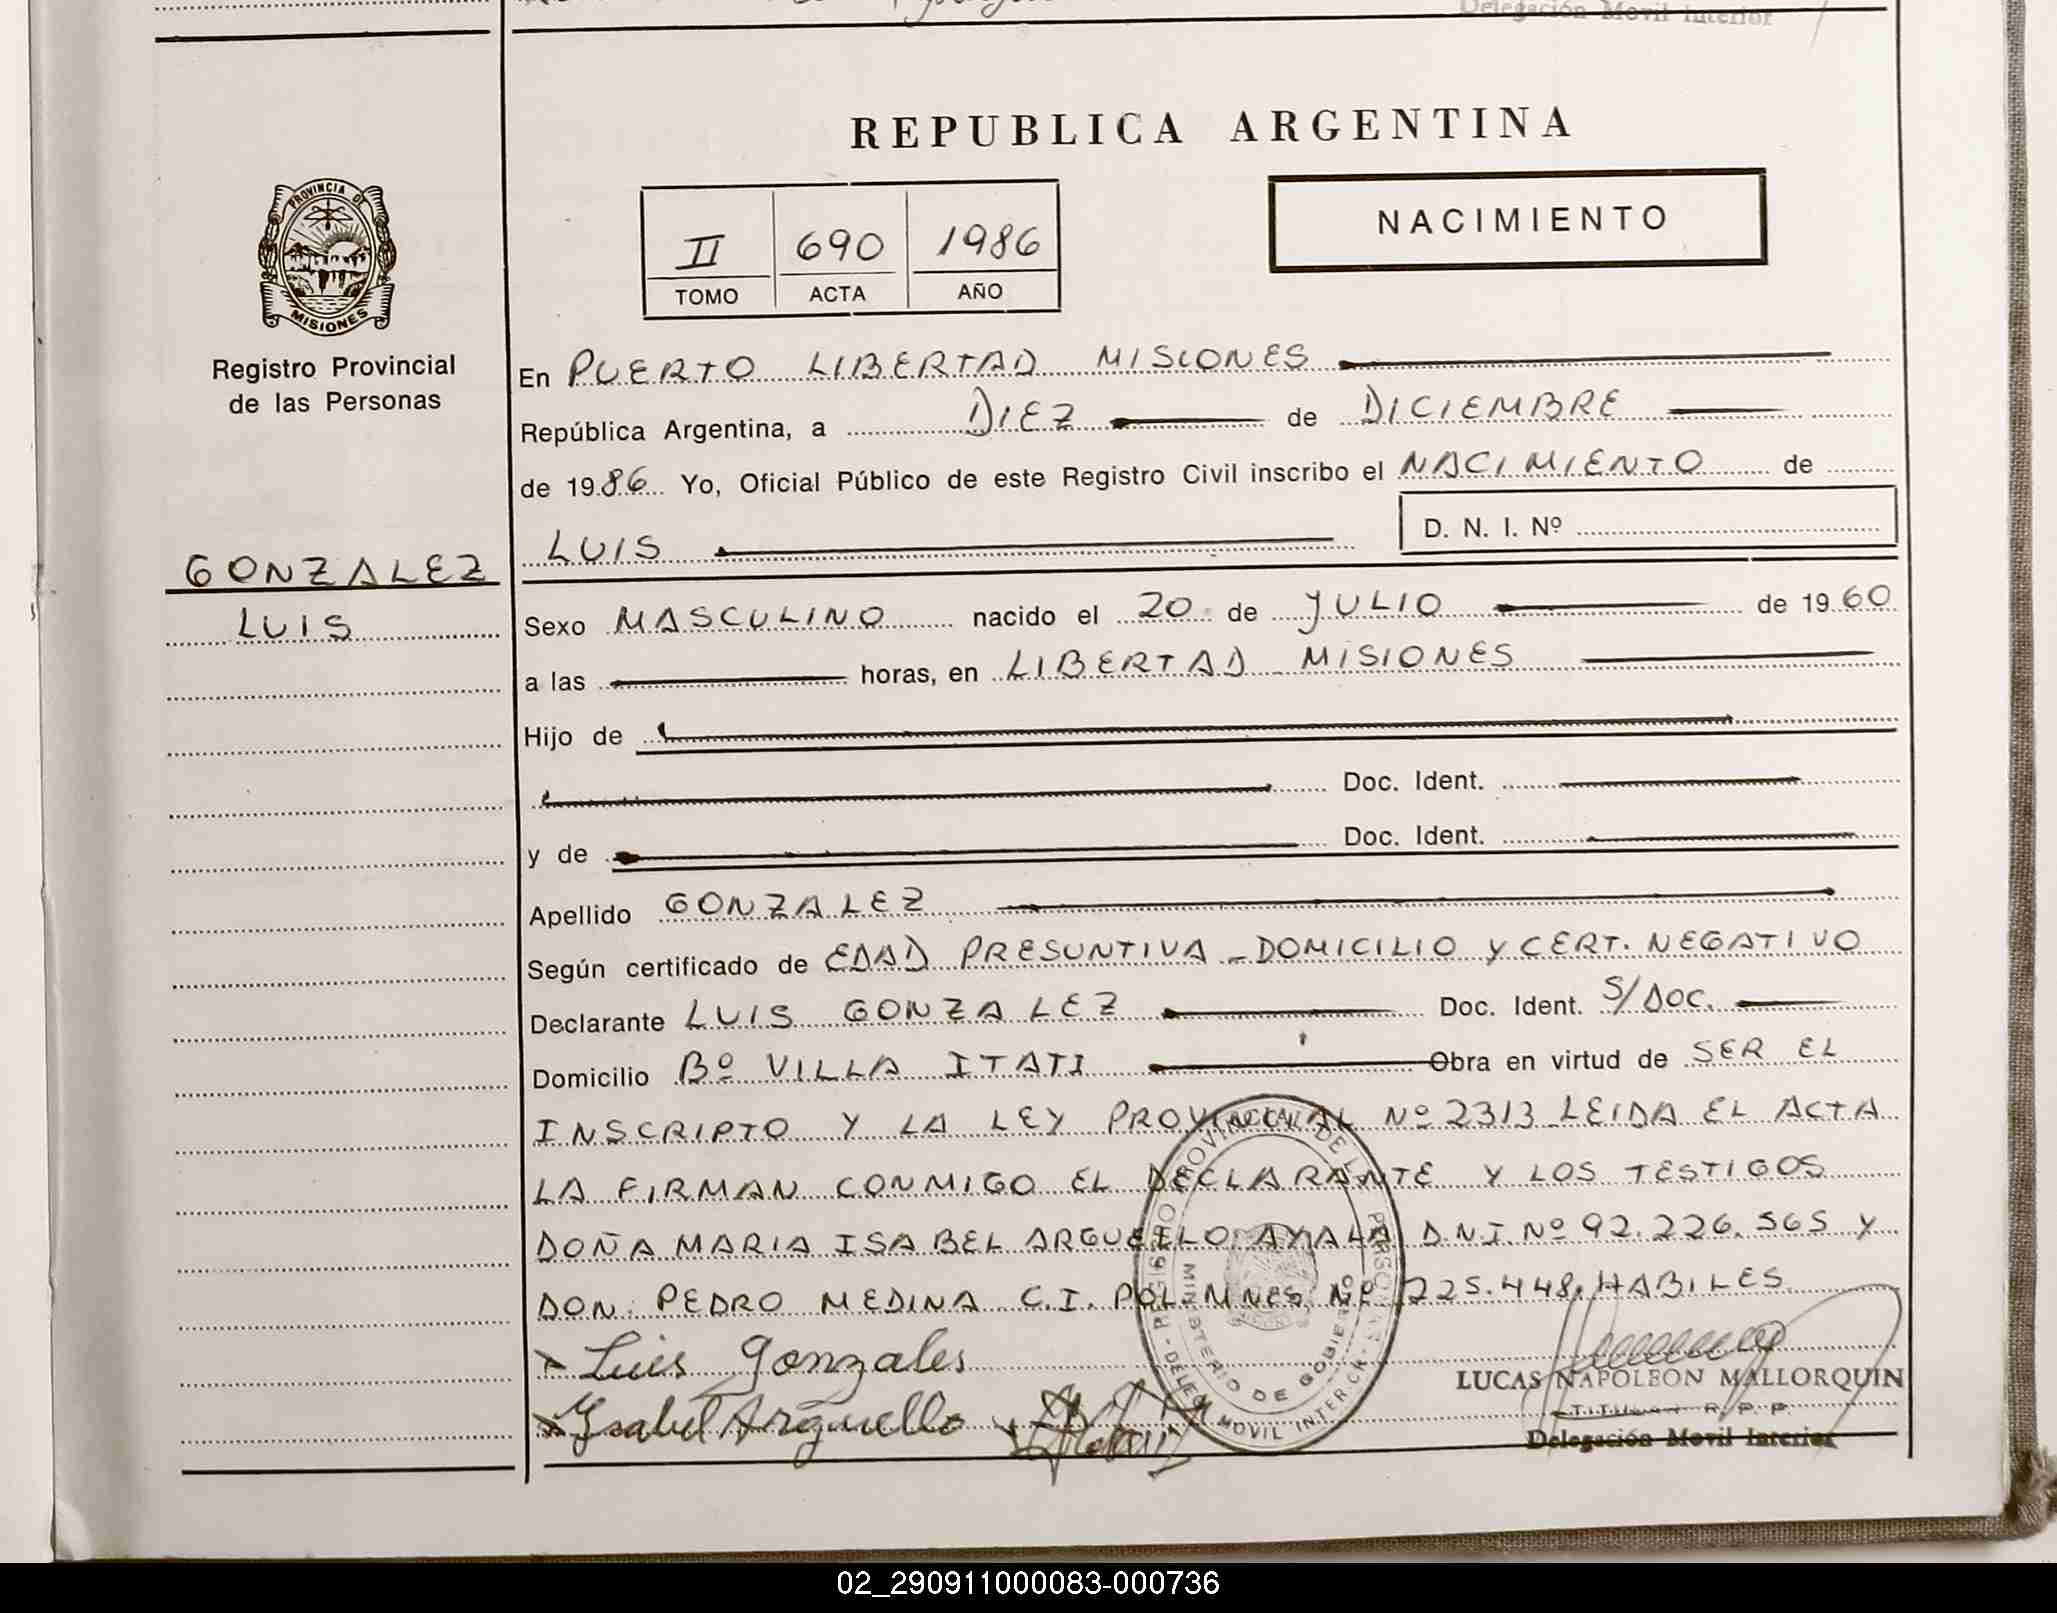 Delegación Movil Interior
REPUBLICA ARGENTINA
PROVINCIA DE
MISIONES
Registro Provincial
de las Personas
II 690 1986
TOMO ACTA AÑO
NACIMIENTO
GONZALEZ
LUIS
En PUERTO LIBERTAD MISIONES
República Argentina, a DIEZ de DICIEMBRE
de 1986 Yo, Oficial Público de este Registro Civil inscribo el NACIMIENTO de
LUIS D. N. I. Nº
Sexo MASCULINO nacido el 20 de JULIO de 1960
a las horas, en LIBERTAD - MISIONES
Hijo de
Doc. Ident.
y de Doc. Ident.
Apellido GONZALEZ
Según certificado de EDAD PRESUNTIVA - DOMICILIO Y CERT. NEGATIVO
Declarante LUIS GONZALEZ Doc. Ident. S/DOC.
Domicilio Bº VILLA ITATI Obra en virtud de SER EL
INSCRIPTO Y LA LEY PROVINCIAL Nº 2313 - LEIDA EL ACTA
LA FIRMAN CONMIGO EL DECLARANTE Y LOS TESTIGOS
DOÑA MARIA ISABEL ARGUELLO AYALA D.N.I. Nº 92.226.565 Y
DON: PEDRO MEDINA C.I. POL. MNES. Nº 225.448. HABILES
Luis Gonzales
Ysabel Arguello
LUCAS NAPOLEON MALLORQUIN
TITULAR R. P. P.
Delegación Movil Interior
REGISTRO PROVINCIAL DE LAS PERSONAS
MINISTERIO DE GOBIERNO
02_290911000083-000736